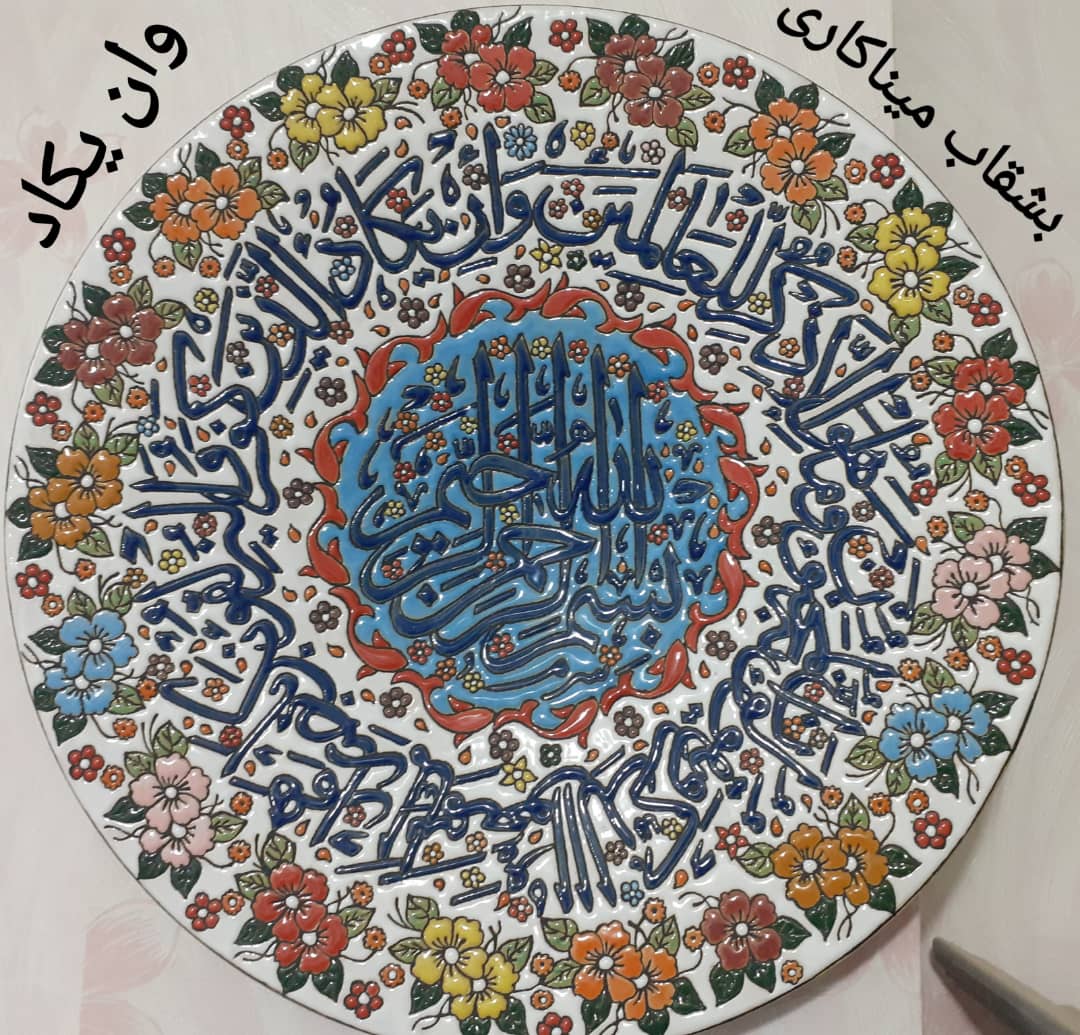 بشقاب میناکاری
وان یکاد
بسم الله الرحمن الرحیم
وإن یکاد الذین کفروا لیزلقونک بأبصارهم لما سمعوا الذکر ویقولون إنه لمجنون وما هو إلا ذکر للعالمین